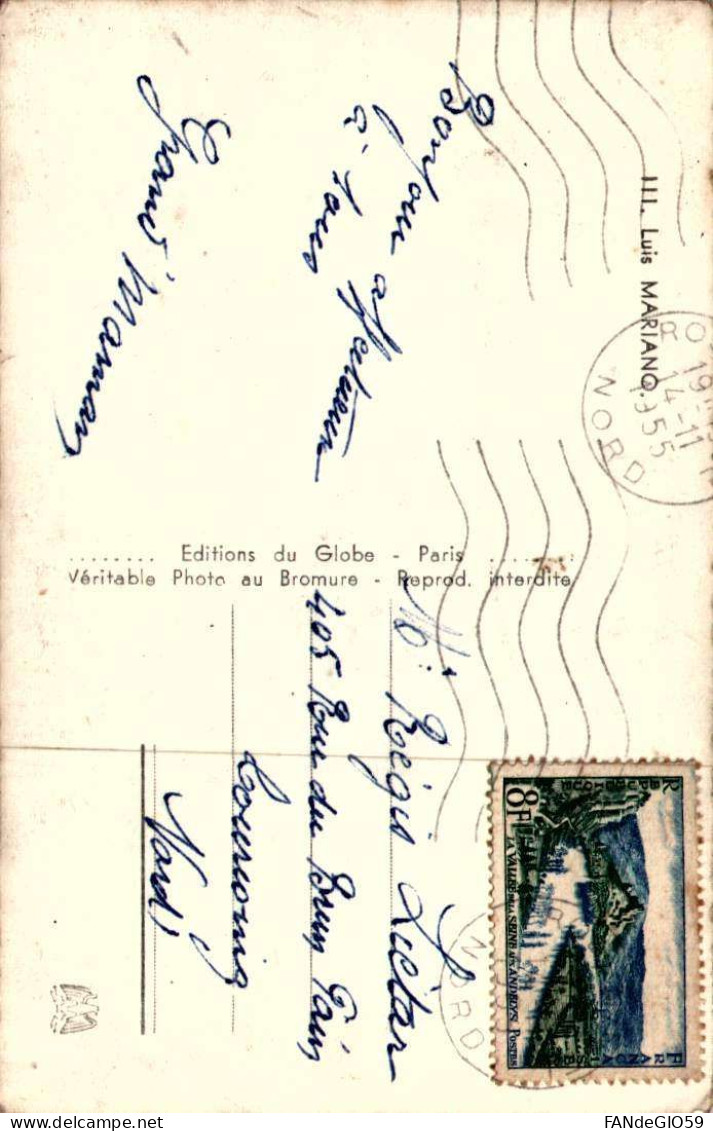 III. Luis MARIANO.
Bonjour affectueux
à tous
Grand'Maman
Editions du Globe - Paris
Véritable Photo au Bromure - Reprod. interdite
Mr Régis Liétar
405 Rue du Brun Pain
Tourcoing
Nord
RO
19
14-11
1955
NORD
NORD
8F
REPUBLIQUE FRANÇAISE
LA VALLÉE DE LA SEINE AUX ANDELYS
POSTES
FANdeGIO59